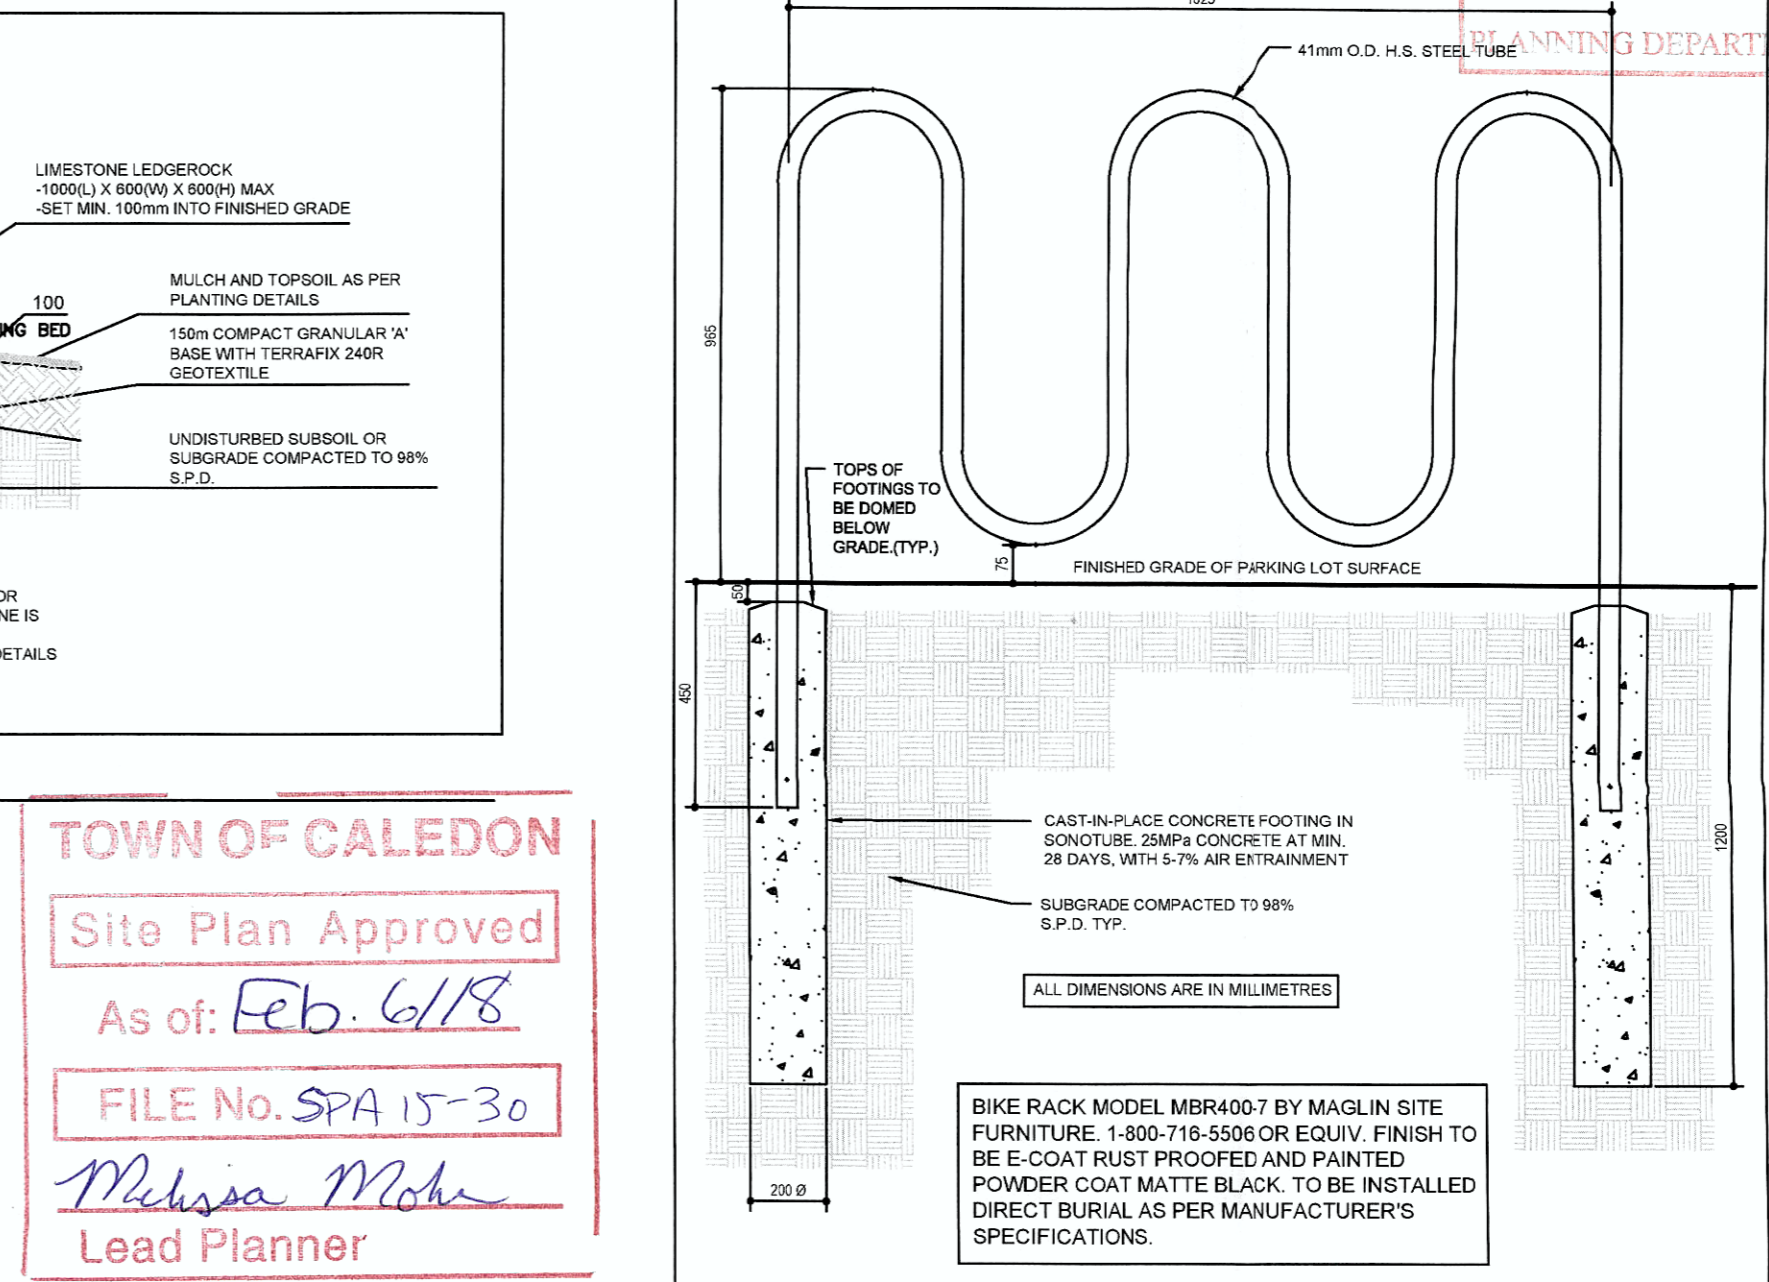 LIMESTONE LEDGEROCK
-1000(L) X 600(W) X 600(H) MAX
-SET MIN. 100mm INTO FINISHED GRADE
100
BED
MULCH AND TOPSOIL AS PER
PLANTING DETAILS
150m COMPACT GRANULAR 'A'
BASE WITH TERRAFIX 240R
GEOTEXTILE
UNDISTURBED SUBSOIL OR
SUBGRADE COMPACTED TO 98%
S.P.D.
OR
NE IS
DETAILS
TOWN OF CALEDON
Site Plan Approved
As of: Feb. 6/18
FILE No. SPA 15-30
Melissa
Lead Planner
PLANNING DEPART
41mm O.D. H.S. STEEL TUBE
965
TOPS OF
FOOTINGS TO
BE DOMED
BELOW
GRADE.(TYP.)
75
FINISHED GRADE OF PARKING LOT SURFACE
50
450
1200
CAST-IN-PLACE CONCRETE FOOTING IN
SONOTUBE. 25MPa CONCRETE AT MIN.
28 DAYS, WITH 5-7% AIR ENTRAINMENT
SUBGRADE COMPACTED TO 98%
S.P.D. TYP.
ALL DIMENSIONS ARE IN MILLIMETRES
200 Ø
BIKE RACK MODEL MBR400-7 BY MAGLIN SITE
FURNITURE. 1-800-716-5506 OR EQUIV. FINISH TO
BE E-COAT RUST PROOFED AND PAINTED
POWDER COAT MATTE BLACK. TO BE INSTALLED
DIRECT BURIAL AS PER MANUFACTURER'S
SPECIFICATIONS.